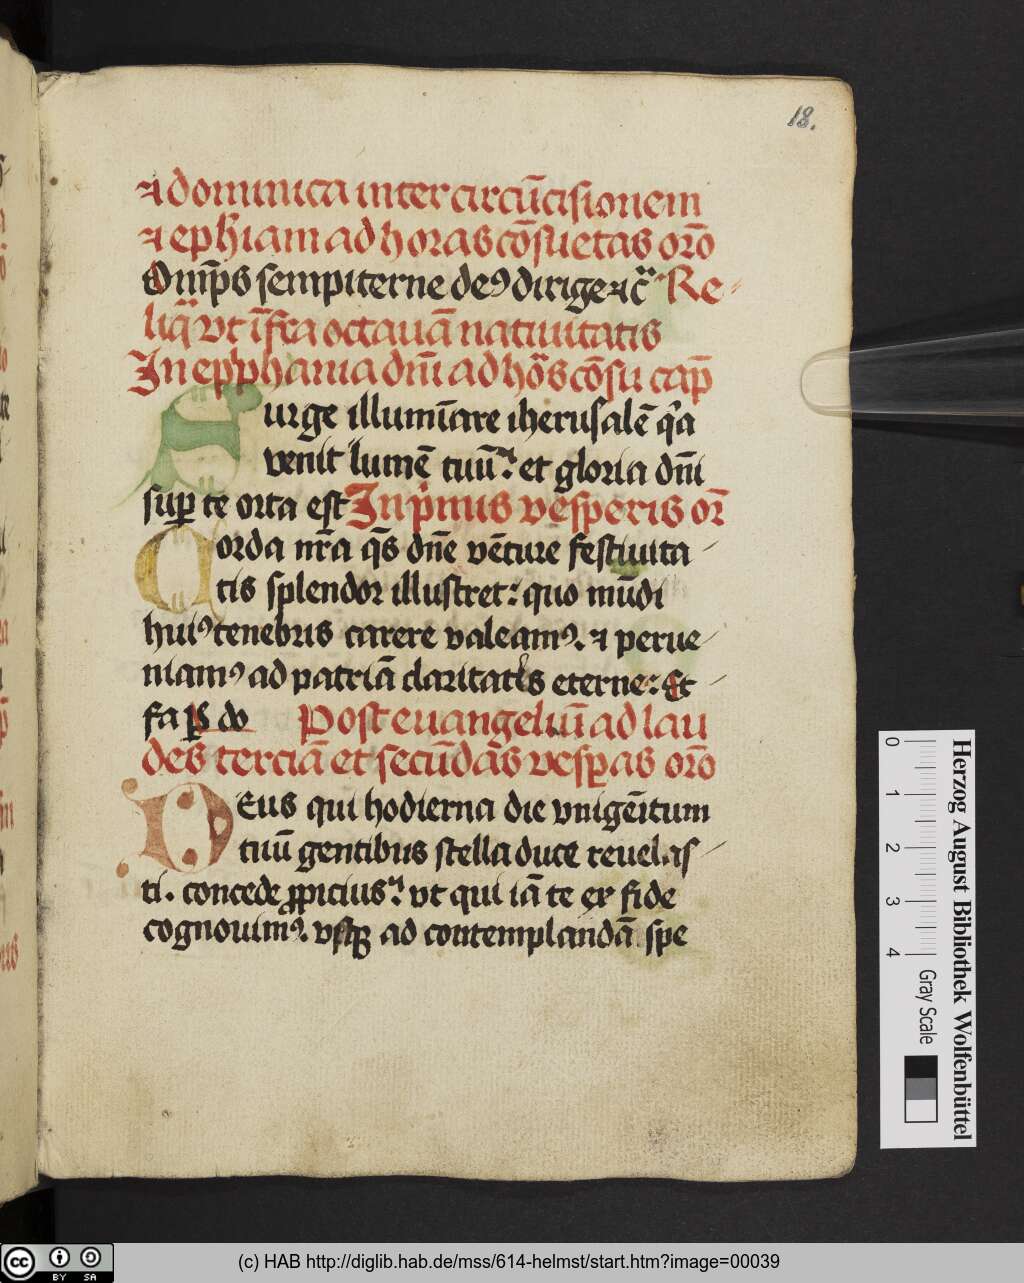 18.
⁊ dominica inter circu̅cisionem
⁊ ephiam ad horas co̅suetas oro̅
Om̅ps sempiterne deꝰ dirige ⁊c̅ Re-
liqͣ vt i̅fra octaua̅ natiuitatis
In epyphania dn̅i ad ho̅s co̅su cap̅
Surge illumi̅are iherusale̅ qͥa
venit lume̅ tuu̅: et gloria dn̅i
suꝑ te orta est In pͥmis vesperis or̅
Corda nr̅a qs̅ dn̅e ve̅ture festiuita
tis splendor illustret: quo mu̅di
huiꝰ tenebris carere valeamꝰ. ⁊ perue
niamꝰ ad patria̅ claritatis eterne: Et
fa ps do Post euangeliu̅ ad lau
des tercia̅ et secu̅da̅s vesꝑas oro̅
DEus qui hodierna die vnige̅itum
tuu̅ gentibus stella duce reuelas
ti. concede ꝓpicius: vt qui ia̅ te ex fide
cognouimꝰ. vsqꝫ ad contemplanda̅ spe
Herzog August Bibliothek Wolfenbüttel
0 1 2 3 4
Gray Scale
cc BY SA
(c) HAB http://diglib.hab.de/mss/614-helmst/start.htm?image=00039